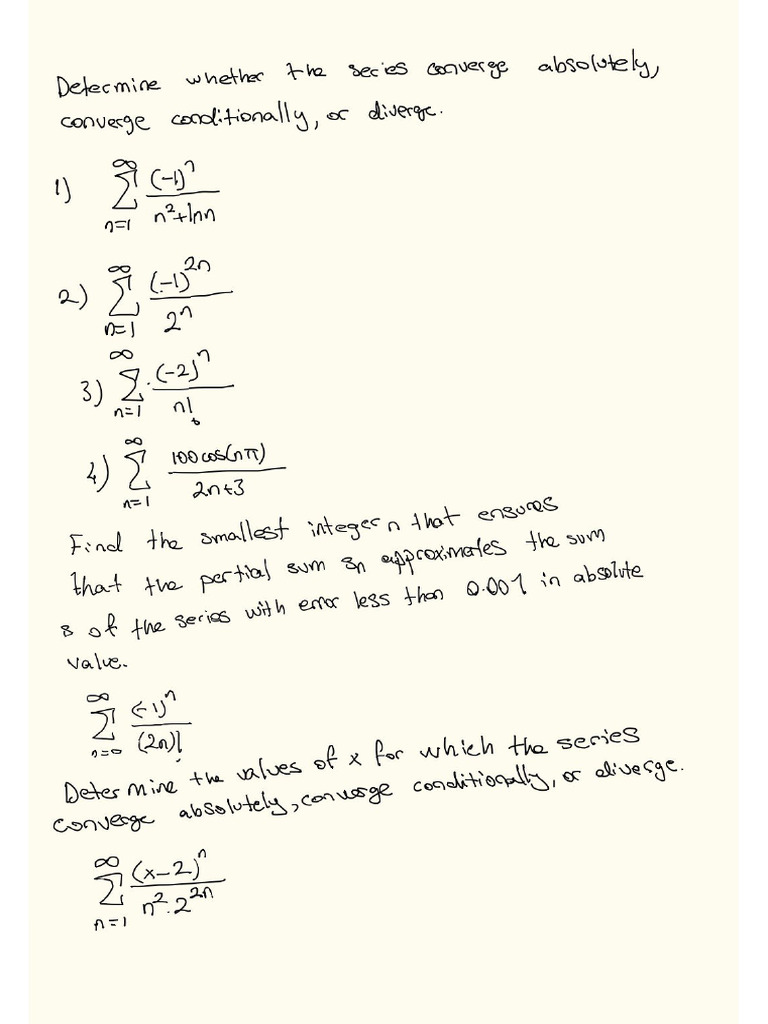 Determine whether the series converge absolutely,
converge conditionally, or diverge.
1) ∑_{n=1}^{∞} (-1)^n / (n²+lnn)
2) ∑_{n=1}^{∞} (-1)^{2n} / 2^n
3) ∑_{n=1}^{∞} (-2)^n / n!
4) ∑_{n=1}^{∞} 100cos(nπ) / (2n+3)
Find the smallest integer n that ensures
that the partial sum sn approximates the sum
s of the series with error less than 0.001 in absolute
value.
∑_{n=0}^{∞} (-1)^n / (2n)!
Determine the values of x for which the series
converge absolutely, converge conditionally, or diverge.
∑_{n=1}^{∞} (x-2)^n / (n².2^{2n})